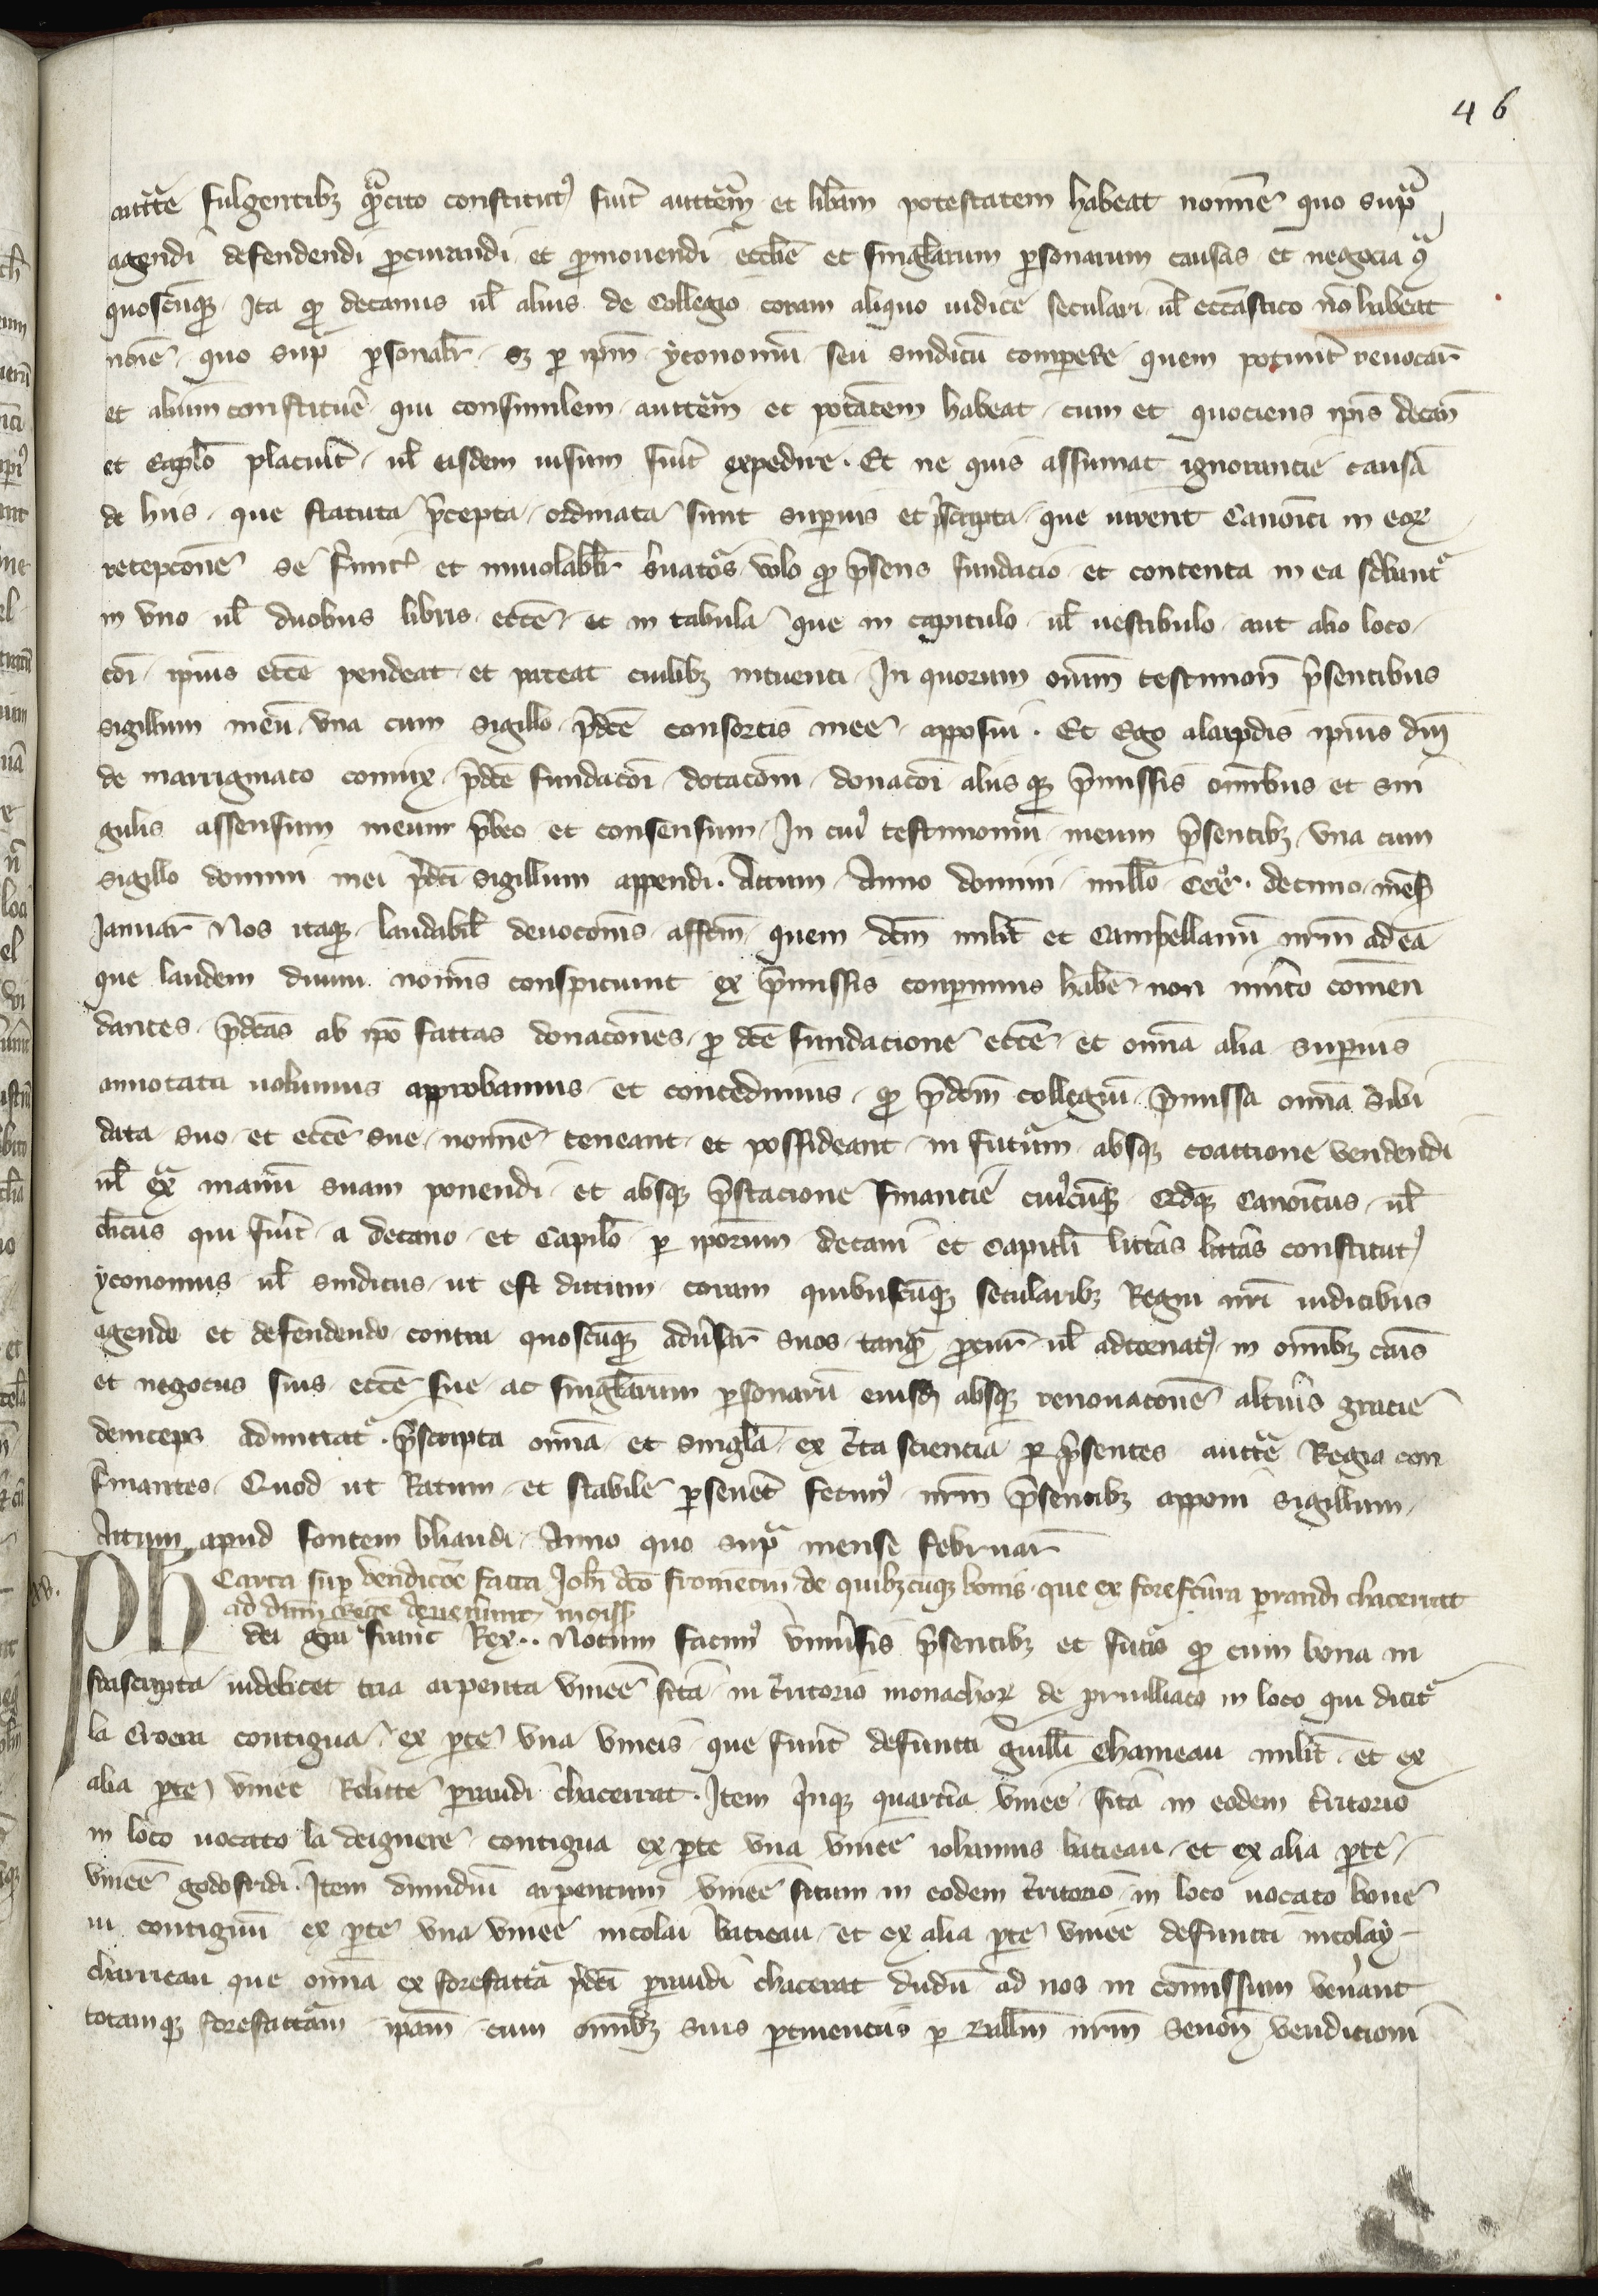 46
auctте fulgentibꝫ q̃cito constitutꝰ fuit̃ auctetẽm et lib̃am potestatem habeat nomĩe quo supᵃ
agendi defendendi ꝓcurandi et ꝓmouendi eccl̃ie et singl̃arum ꝑsonarum causas et negocia 
quoscũqꝫ Ita qꝫ decanus ul̃ alius de Collegio coram aliquo iudice seculari ul̃ eccãstico nõ habeat
noĩe quo supᵃ ꝑsonalr̃ sꝫ ꝑ ip̃m yconomũ seu sindicũ comꝑere quem pot̃unt reuocar̃
et alium constituẽ qui consimilem auctẽm et potãtem habeat cum et quociens ip̃is decañ
et Capl̃o placuit̃ ul̃ eisdem uisum fuit̃ expedire. Et ne quis assumat ignorancie causã
de hiis que statuta p̃cepta ordinata sunt suꝑius et p̃scripta que iurent Canoñici in eoꝝ
recepcõne se f̃mit̃ et inuiolabilr̃ s̃uatos volo qꝫ p̃sens fundacio et contenta in ea sc̃bantᵃ
in vno ul̃ duobus libris eccẽ et in tabula que in capitulo ul̃ uestibulo aut alio loco
cõi ip̃ius eccẽ pendeat et pateat cuilibꝫ intuenti In quorum oĩum testimoñ p̃sentibus
sigillum meũ vna cum sigillo p̃dc̃e consortis mee apposui. Et Ego alaẏpdis ip̃ius dñi
de marrigniaco coniux p̃dc̃e fundacõi dotacõni donacõi aliis qꝫ p̃missis om̃ibus et sin
gulis assensum meum p̃beo et consensum In cuiꝰ testimoniũ meum p̃sentibꝫ vna cum
sigillo domini mei p̃dc̃i sigillum appendi. Actum Anno domini mill̃o CCCº. decimo meñs
Januar̃ Nos itaqꝫ laudabil̃ deuocõnis affc̃m quem dc̃m milit̃ et Cambellanũ nr̃m ad ea
que laudem diuini nomĩs conspiciunt ex p̃missis conꝑimus hab̃e non im̃ito comen
dantes p̃dc̃as ab ip̃o factas donacõnes ꝓ dc̃e fundacione eccẽ et om̃ia alia suꝑius
annotata uolumus approbamus et concedimus qꝫ p̃dc̃m collegiũ p̃missa om̃ia sibi
data suo et eccẽ sue nomĩe teneant et possideant in futᵃum absqꝫ coactione vendendi
ul̃ exᵃ manũ suam ponendi et absqꝫ p̃stacione financie cuiꝰcũqꝫ Qdqꝫ Canoñicus ul̃
cl̃icus qui fuit̃ a decano et Capitl̃o ꝑ ip̃orum decani et Capitl̃i litt̃as litt̃as constitutꝰ
yconomus ul̃ sindicus ut est dictum coram quibuscũqꝫ secularibꝫ Regni nr̃i iudicibus
agendo et defendendo contra quoscũqꝫ adũsar̃ suos tanqᵃ ꝓcur̃ ul̃ aduocatꝰ in om̃ibꝫ cãis
et negociis suis eccẽ sue ac singl̃arum ꝑsonarũ eiusdꝫ absqꝫ renouacõne alt̃ius gracie
deinceps admittatᵃ. p̃scripta om̃ia et singl̃a ex c̃ta sciencia ꝑ p̃sentes auctᵃte Regia con
f̃mantes Quod ut Ratum et stabile ꝑseuet̃ fecimꝰ nr̃m p̃sentibꝫ apponi sigillum
Actum apud fontem bliaudi Anno quo supᵃ mense Februar̃
xv.
Carta suꝑ vendicõe facta Joh̃i dc̃o Fromentin de quibꝫcũqꝫ bonis que ex forefcũra ꝑrandi chacerrat
ad dñm Rege deuenerunt in
Ph dei gr̃a Franc̃ Rex.. Notum facimꝰ vniũsis p̃sentibꝫ et futᵃis qꝫ cum bona in
frascripta uidelicet tria arpenta vinee sita in t̃ritorio monachoꝝ de pruilliaco in loco qui dicitᵃ
la Croera contigua ex ꝑte vna vineis que fuit̃ defuncti guill̃i Chameau milit̃ et ex
alia ꝑte vinee Relicte ꝑraudi chacerrat. Item q̃nqꝫ quart̃ia vinee sita in eodem t̃ritorio
in loco uocato la deignere contigua ex ꝑte vna vinee iohannis batieau et ex alia ꝑte
vinee godofridi. Item dimidiũ arpentum vinee situm in eodem t̃ritorio in loco uocato boue
iu contiguũ ex ꝑte vna vinee nicolai batieau et ex alia ꝑte vinee defuncti nicolay
charreau que om̃ia ex forefactᵃa p̃dc̃i ꝑraudi chacerat dudũ ad nos in com̃issum veñant
totamqꝫ forefactᵃam ip̃am cum om̃ibꝫ suis ꝑtinenciis ꝑ Ball̃m nr̃m Senoñ vendicioni